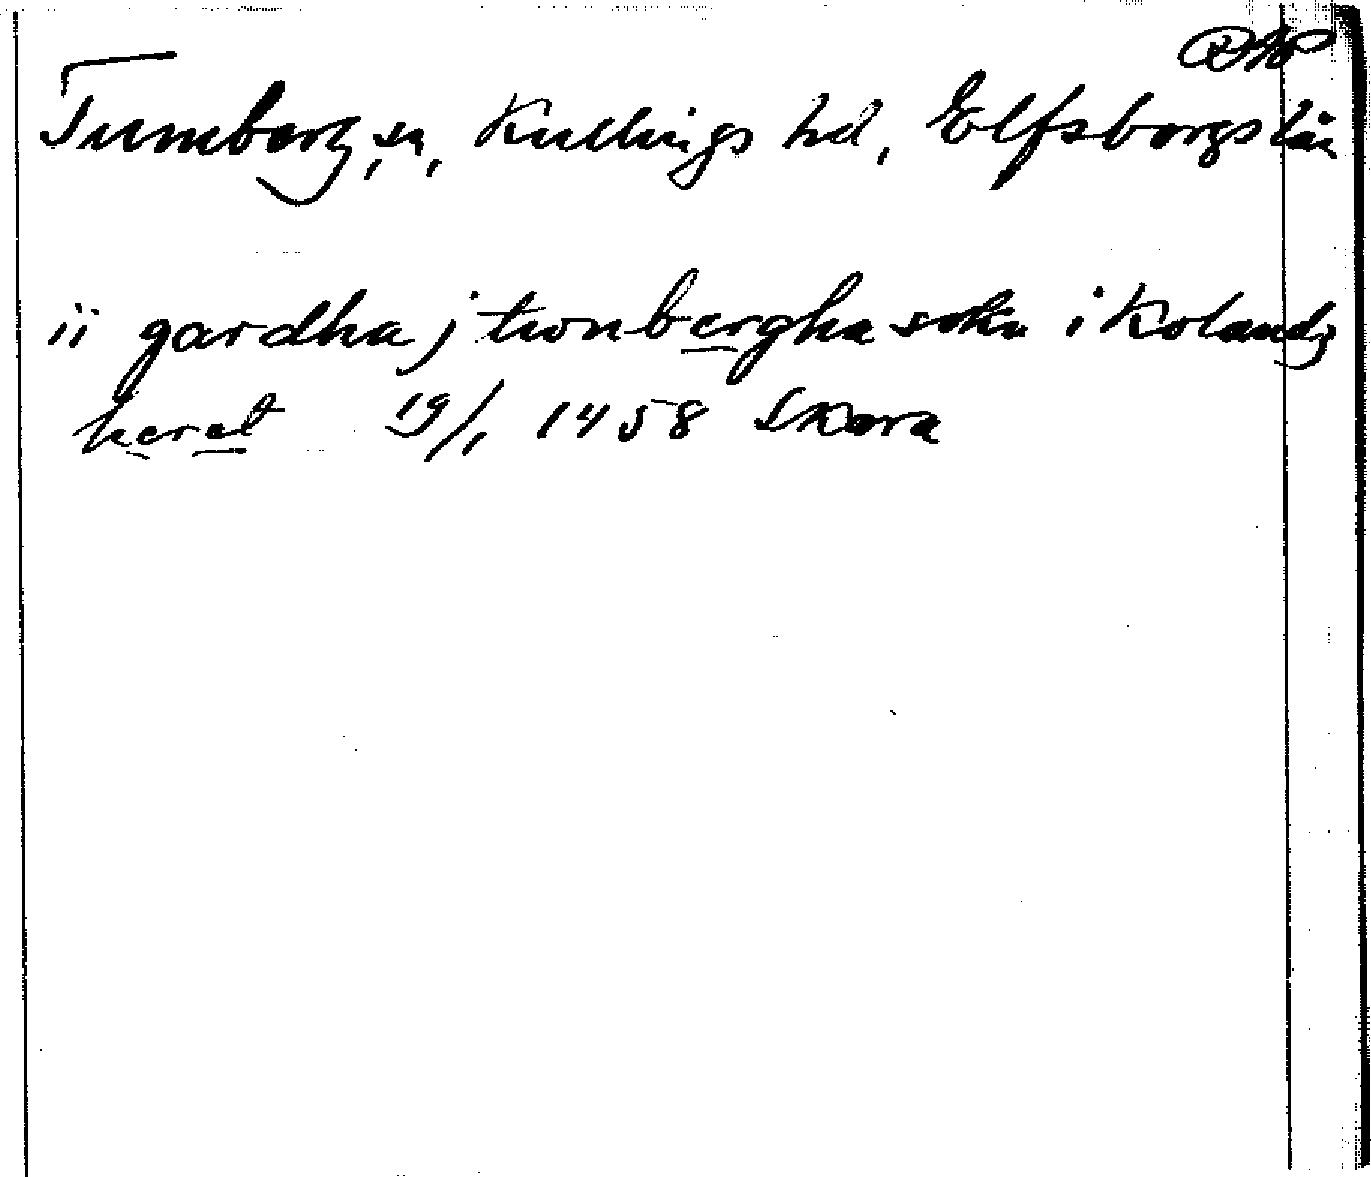 Tumberg, sn, Kullings hd, Elfsborgs län
ii gardha j twnbergha sokn i Kolandz
heret 19/1 1458 Skara